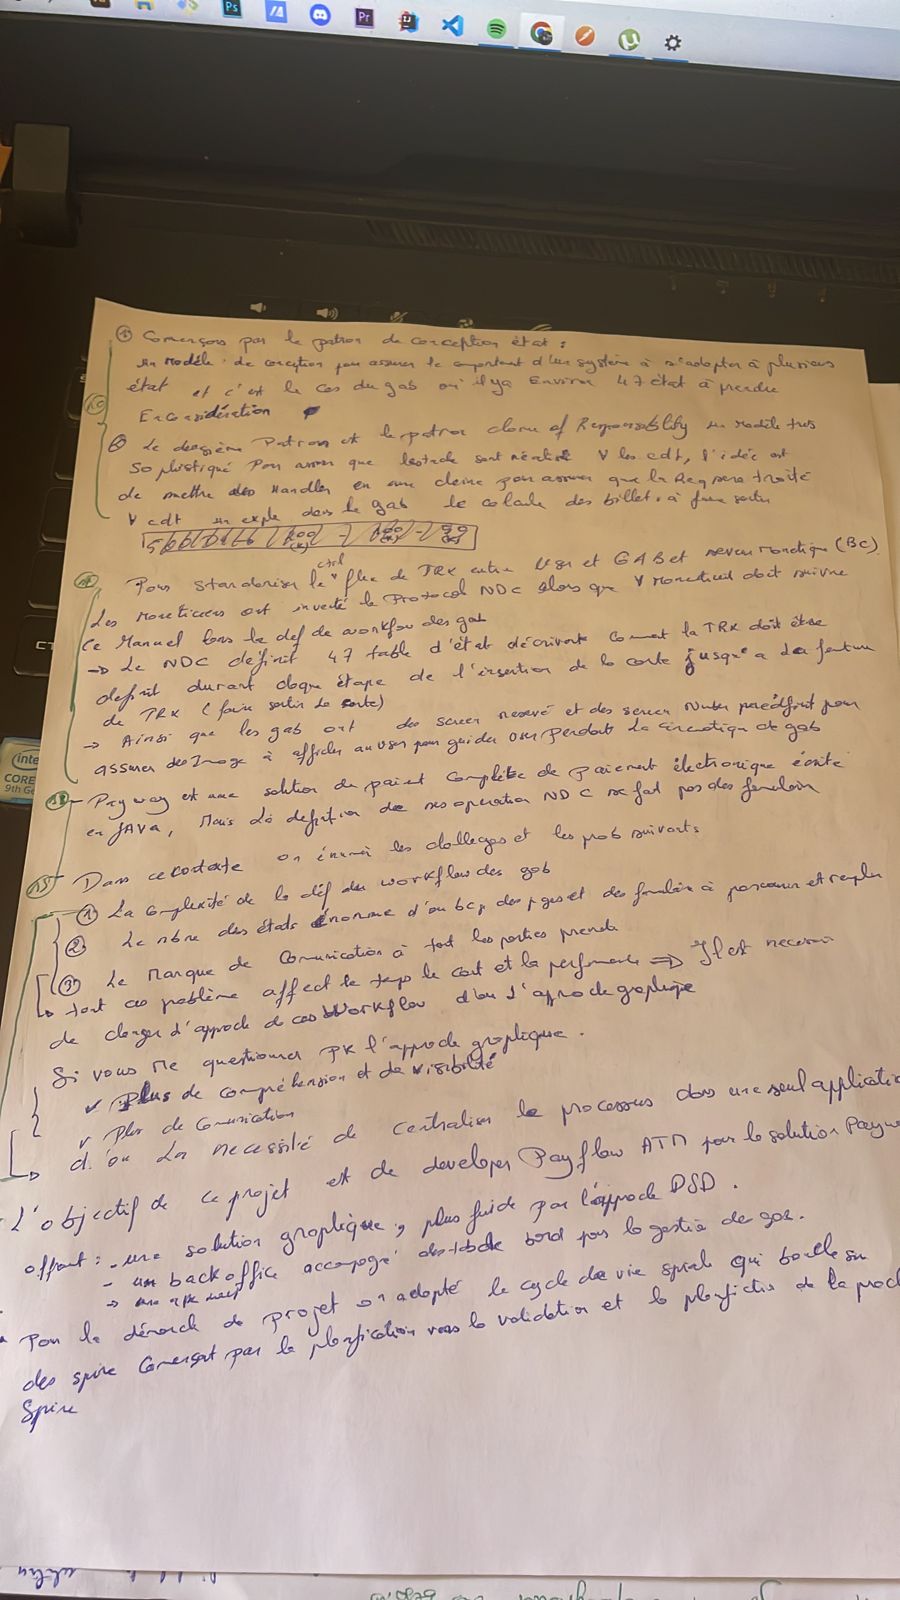 Ps
Pr
① Començons par le patron de conception état :
un modèle de conception pour assurer le comportent d'un système à s'adapter à plusieurs
état et c'est le cas du gab où il ya Environ 47 état à prendre
En Considération
② Le deuxième Patron est le patron chaine of Responsability un modèle très
Sophistiqué Pour assurer que les sont ∀ les cdt, l'idée est
de mettre des Handler en une chaine pour assurer que la Req sera traité
∀ cdt un exple dans le gab le calcule des billets à faire sortir
Pour Standariser le ctrl flux de TRX entre User et GAB et serveur monétique (BC)
Les Monéticiens ont inventé le Protocol NDC alors que ∀ Monéticien doit suivre
Ce Manuel lors de la def de workflow des gab
→ Le NDC définit 47 table d'état décrivant Comment la TRX doit être
définit durant chaque étape de l'insertion de la carte jusqu'à la
de TRX (faire sortir la carte)
→ Ainsi que les gab ont des screen reservé et des screen Number prédéfinit pour
assurer des Image à afficher au user pour guider User pendant La de gab
- Payway est une solution de Complète de paiement électronique écrite
en JAVA, Mais la définition de ses opération NDC se fait
- Dans ce contexte on les challenges et les prob suivants
① La Complexité de la déf du workflow des gab
② Le nbre des états énorme d'où bcp des pages et des formulaire à parcourir et remplir
③ Le Manque de Comunication à tout les parties prenante
→ tout ces problème affect le temps le cout et la performance ⇒ Il est necessaire
de changer d'approche de ces Workflow d'où l'approche graphique
Si vous me questionner pk l'approche graphique.
✓ Plus de compréhension et de visibilité
✓ Plus de Comunication
→ d'où la necessité de centraliser le processus dans une seul applicatio
L'objectif de ce projet est de developer Payflow ATM pour la solution Payw
offrant : - une solution graphique, plus fluide par l'approche DSD.
- un back office accompagé des table bord pour la gestion des gab.
→ une
Pour la démarch de projet on a adopté le cycle de vie spirale qui boucle sur
des spire Començant par la planification vers la validation et la planification de la proch
Spire
intel
CORE
9th Ge